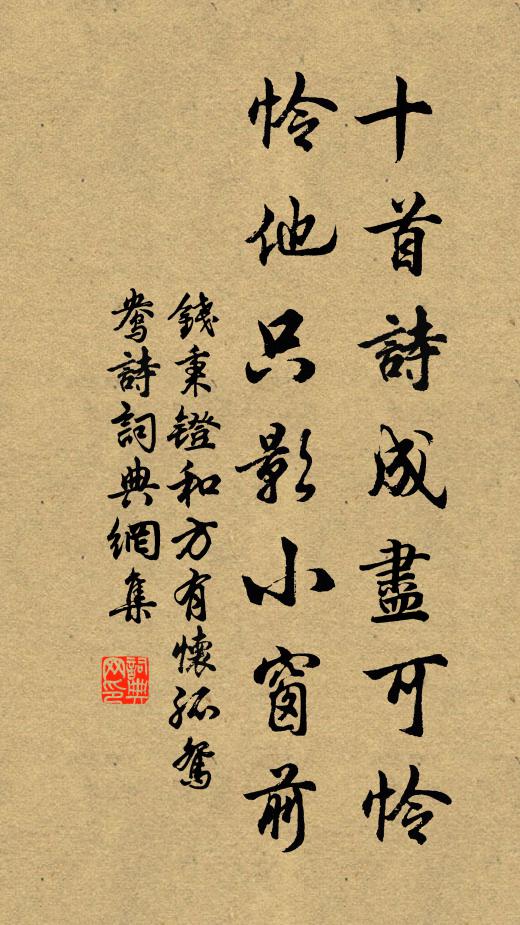 十首詩成盡可憐
憐他只影小窗前
錢秉鐙和方有懷孤鴛
鴦詩詞典網集
詞典網印